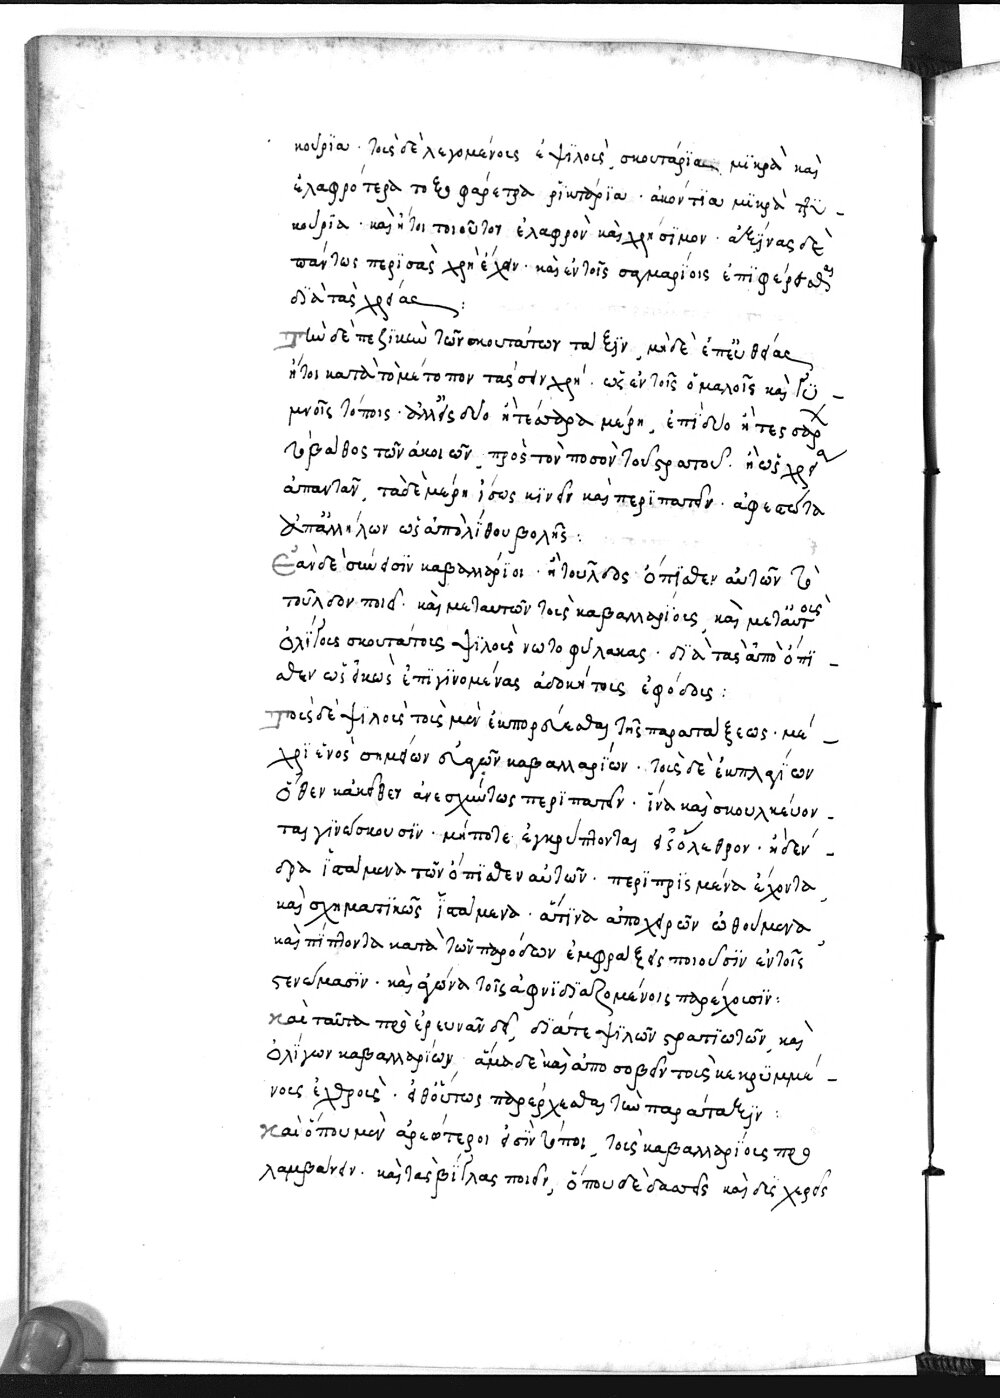 κούρϊα · τοὺς δὲ λεγομένους ἐψϊλοὺς, σκουτάρϊα μϊκρὰ καὶ
ἐλαφρότερα τοξοφάρετρα ῥϊκτάρϊα · ἀκόντϊα μϊκρὰ πϊ-
κούρϊα · καὶ ἤτι τοιοῦτον ἐλαφρὸν καὶ χρήσϊμον · ἀξΐνας δὲ
πάντως περϊσσὰς χρὴ ἔχειν · καὶ ἐν τοῖς σαγμαρΐοις ἐπϊφέρεσθαι
δϊὰ τὰς χρείας :
Τὴν δὲ πεζϊκὴν τῶν σκουτάτων τάξϊν, μηδὲ ἐπ' εὐθείας
ἤτοι κατὰ τὸ μέτοπον τάσσειν χρὴ · ὡς ἐν τοῖς ὁμαλοῖς καὶ γϋ-
μνοῖς τόποις · ἀλλ' εἰς δύο ἢ τέσσαρα μέρη, ἐπὶ δύο ἢ τεσσάρ
τὸ βάθος τῶν ἀκοιῶν, πρὸς τὸν ποσὸν τοῦ στρατοῦ · ἢ ὡς χρεία
ἀπαντᾶν, τὰ δὲ μέρη ἴσως κϊνεῖν καὶ περϊπατεῖν · ἀφεστῶτα
ἀπ' ἀλλήλων ὡς ἀπὸ λΐθου βολῆς :
Ἐὰν δὲ σύνεισϊν καβαλλάρϊοι · ἢ τοῦλδος ὄπϊσθεν αὐτῶν τὸ
τοῦλδον ποιεῖ · καὶ μετ' αὐτῶν τοὺς καβαλλαρΐους, καὶ μετ' αὐτοὺς
ὀλΐγους σκουτάτους ψϊλοὺς νωτοφύλακας · δϊὰ τὰς ἀπὸ ὄπϊ-
σθεν ὡς εἰκὸς ἐπϊγϊνομένας ἀδοκήτους ἐφόδους :
Τοὺς δὲ ψϊλοὺς τοὺς μὲν ἐκπορεύεσθαι τῆς παρατάξεως · μέ-
χρϊ ἑνὸς σημείων δϊ' ὀλΐγων καβαλλαρΐων · τοὺς δὲ ἐκ πλαγΐων
ὅθεν κἀκεῖθεν ἀνεσχύντως περϊπατεῖν · ἵνα καὶ σκουλκεύον-
τας γϊνώσκουσϊν · μήποτε ἐγκρύπτονται εἰς ὄλεθρον · ἢ δέν-
δρα ἱστάμενα τῶν ὄπϊσθεν αὐτῶν · περϊπρϊσμένα ἔχοντα,
καὶ σχηματϊκῶς ἱστάμενα · ἅτϊνα ἀπὸ χειρῶν ὠθούμενα
καὶ πΐπτοντα κατὰ τῶν παρόδων ἐμφράξεις ποιοῦσϊν ἐν τοῖς
στενώμασϊν · καὶ ἀγῶνα τοῖς αἰφνϊδϊαζομένοις παρέχουσϊν :
Καὶ ταῦτα προερευνᾶν δεῖ, δϊά τε ψϊλῶν στρατϊωτῶν, καὶ
ὀλΐγων καβαλλαρΐων, ἅμα δὲ καὶ ἀποσοβεῖν τοὺς κεκρϋμμέ-
νους ἐχθροὺς · εἶθ' οὕτως παρέρχεσθαι τὴν παράταξϊν :
Καὶ ὅπου μὲν ἀρεώτεροι εἰσὶν τόποι, τοὺς καβαλλαρΐους προ
λαμβάνειν · καὶ τὰς βΐγλας ποιεῖν, ὅπου δὲ δασεῖς καὶ δυσχερεῖς